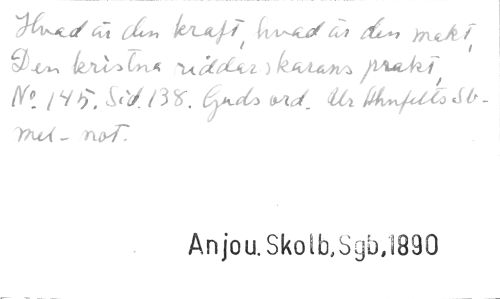 Hvad är den kraft, hvad är den makt,
Den kristna riddarskarans prakt,
No 145. Sid. 138. Guds ord. Ur Ahnfelts Sb-
mel- not.
Anjou. Skolb, Sgb, 1890